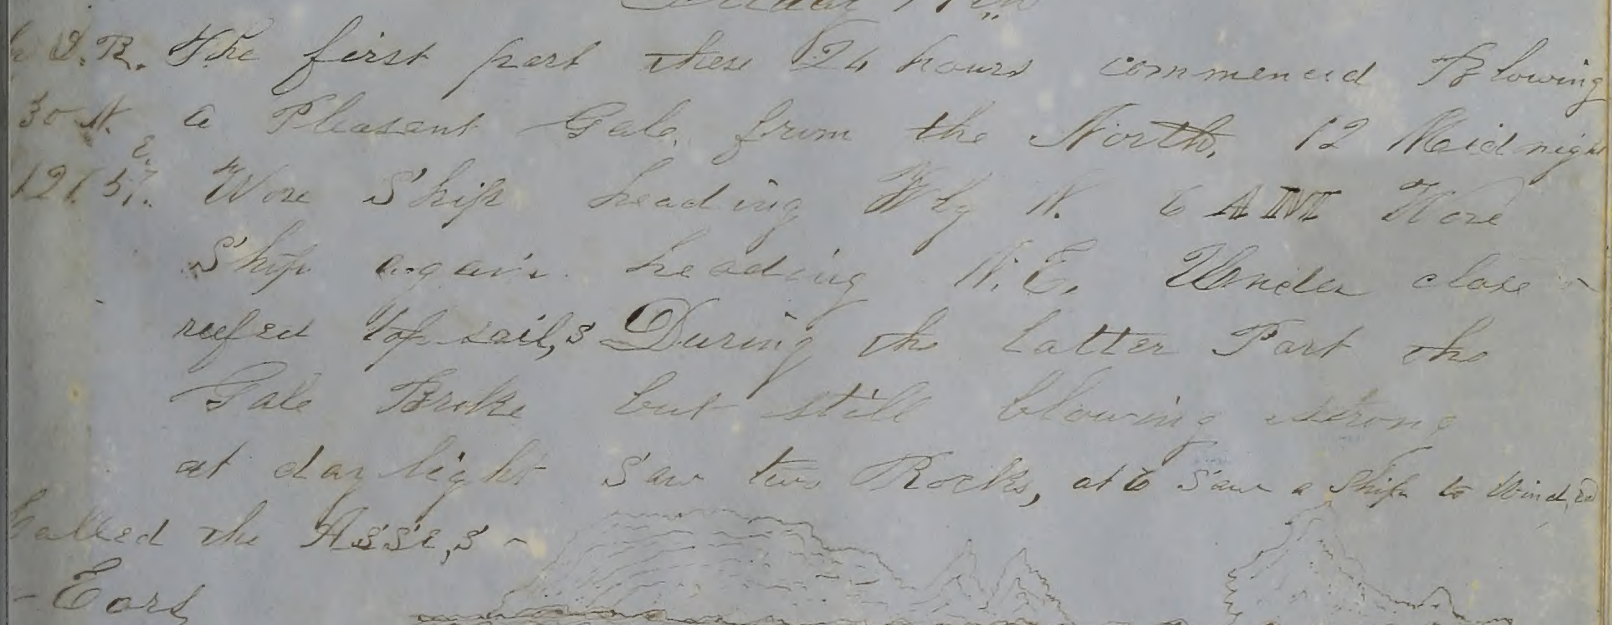 Friday 11th
D.R. The first part these 24 hours commenced Blowing
30 N. a Pleasant Gale from the North, 12 Midnigh
E.
127.57. Wore Ship heading W by N. 6 AM Wore
Ship again heading N.E. Under close -
reefed top sail,s During the latter Part the
Gale Broke but still blowing strong
at day light Saw two Rocks, at 6 Saw a Ship to Wind,rd
called the Asse,s -
- Ears